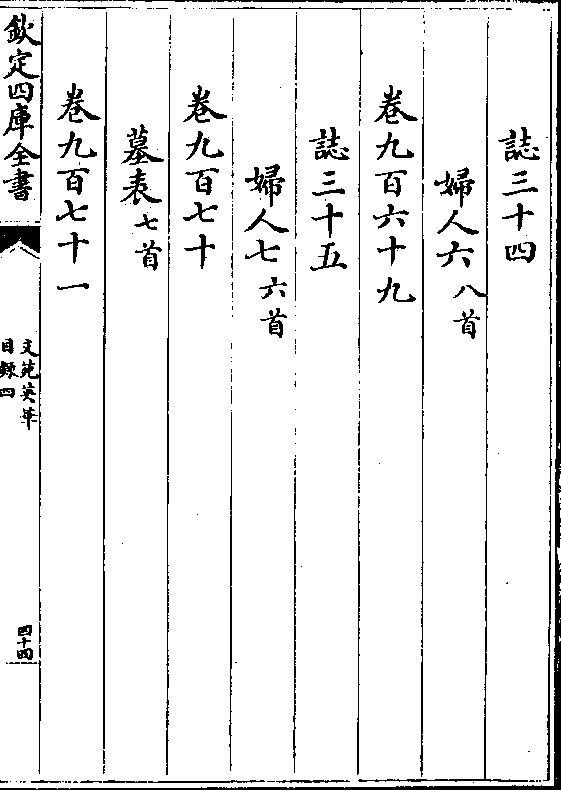 誌三十四
婦人六八首
卷九百六十九
誌三十五
婦人七六首
卷九百七十
墓表七首
卷九百七十一
欽定四庫全書
文苑英華
目録四
四十四